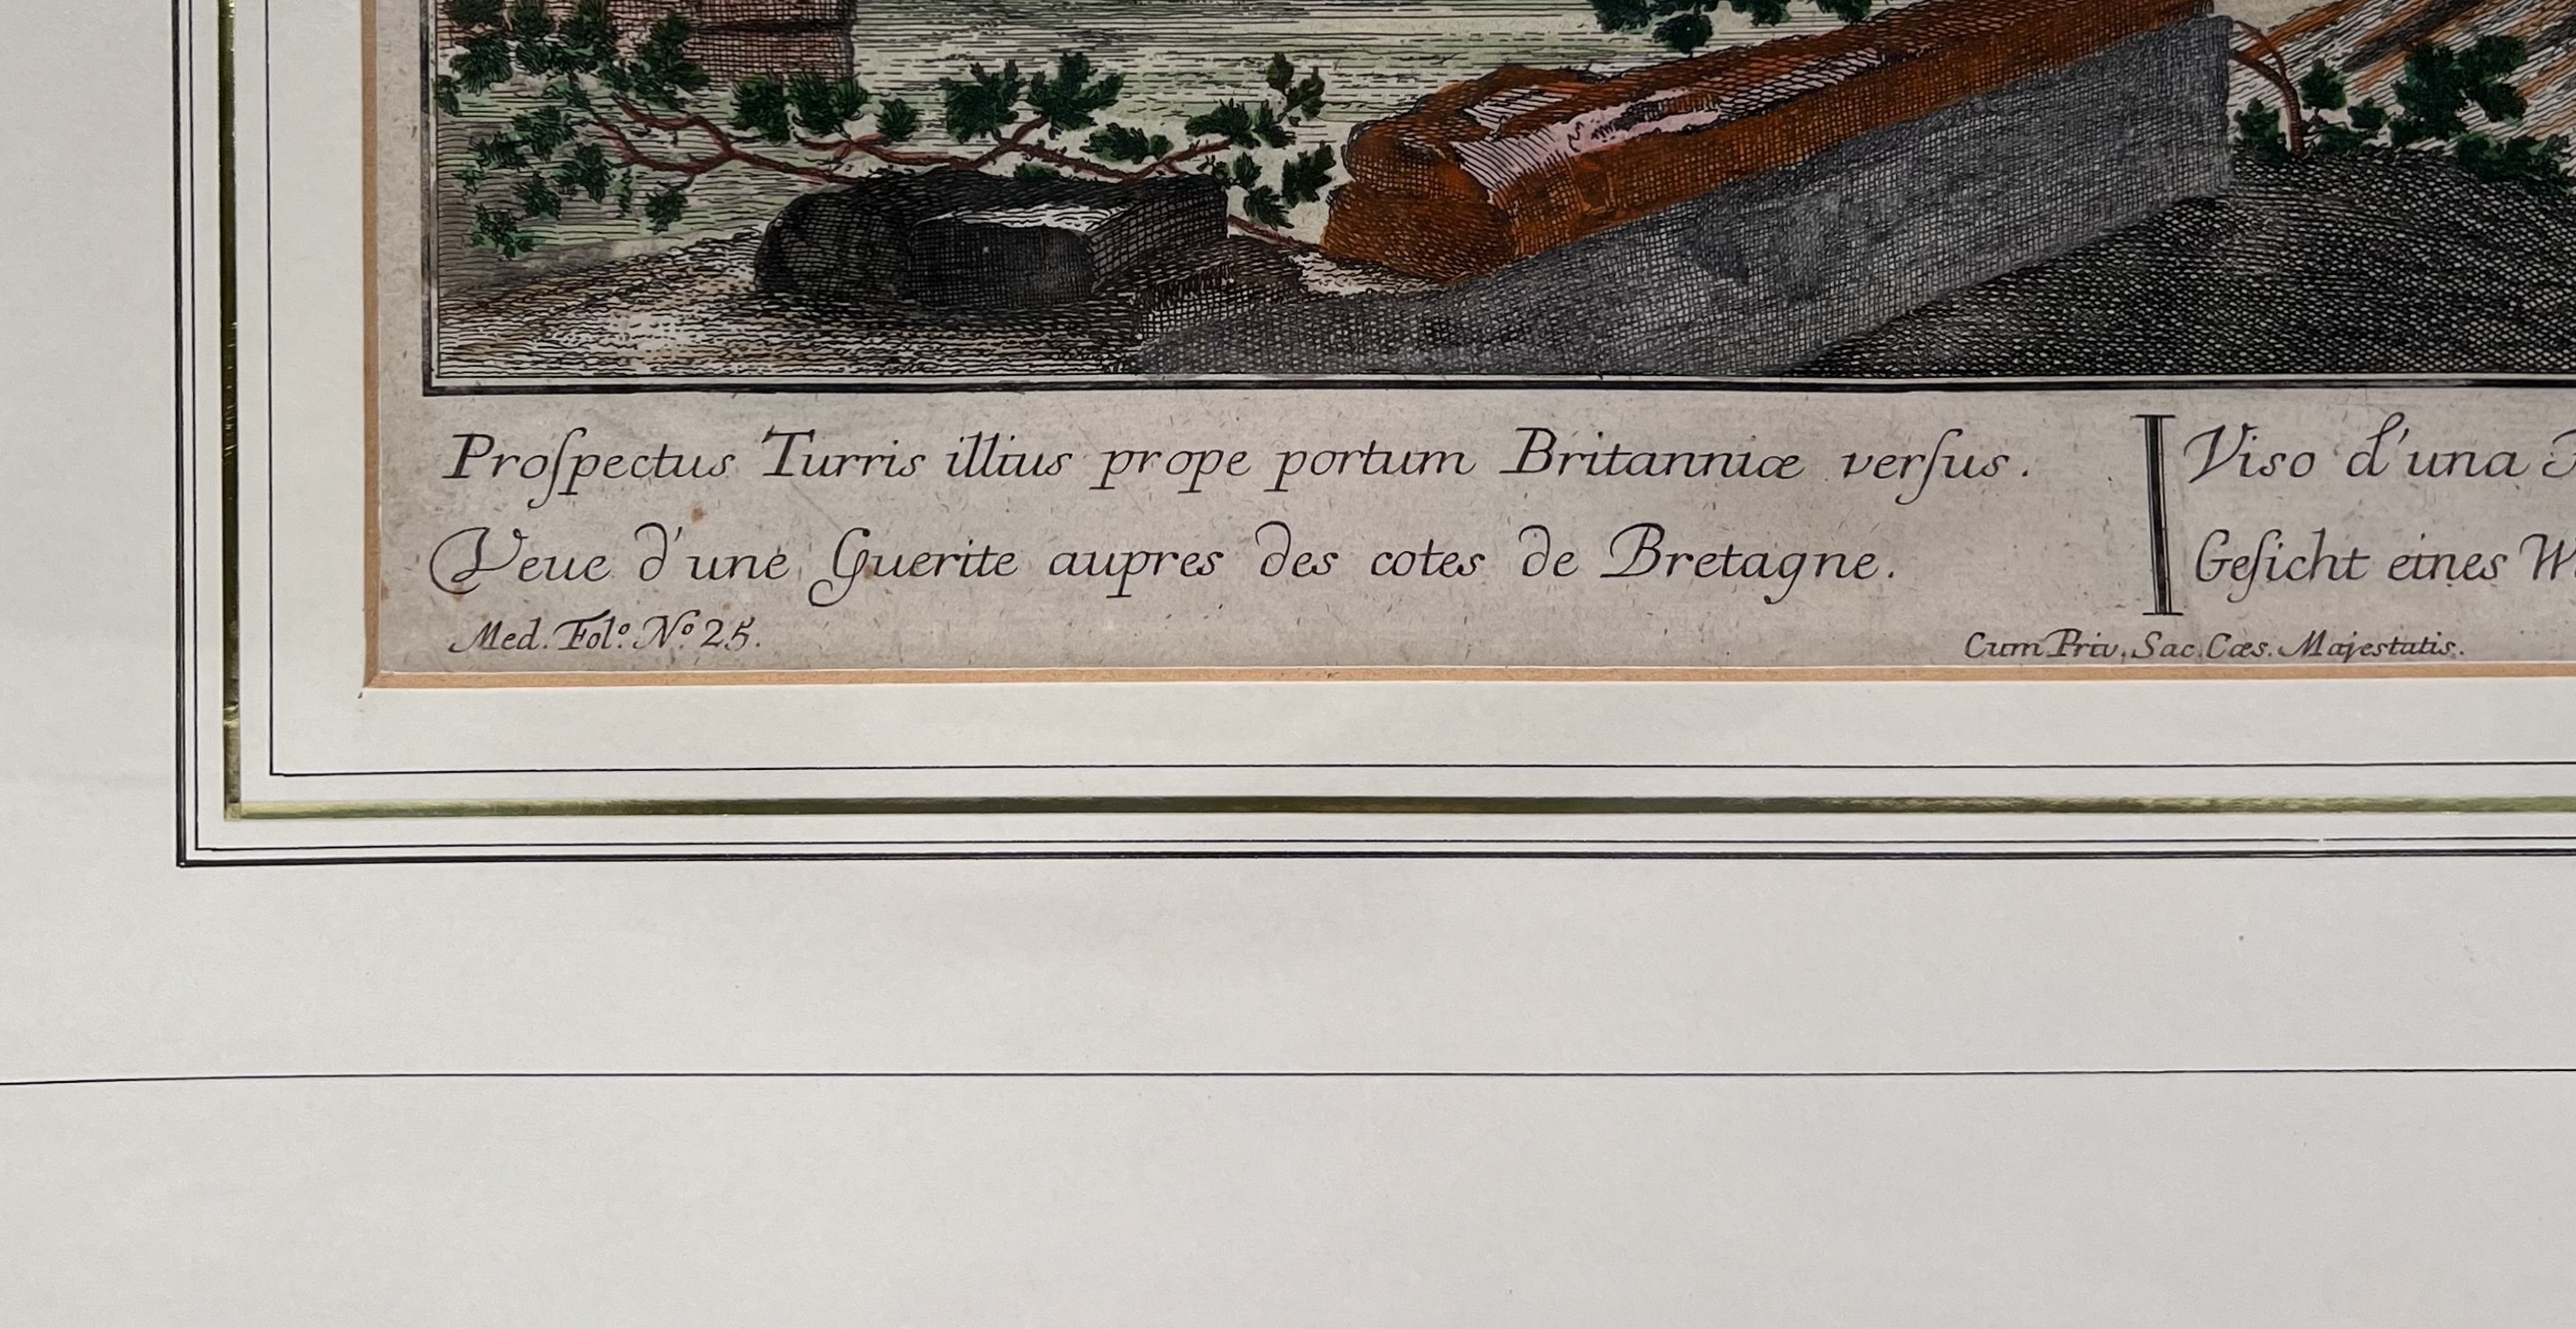 Proſpectus Turris illius prope portum Britanniæ verſus.
Veue d'une Guerite aupres des cotes de Bretagne.
Viso d'una
Geſicht eines
Med. Fol.º Nº 25.
Cum Priv. Sac. Cæs. Majestatis.